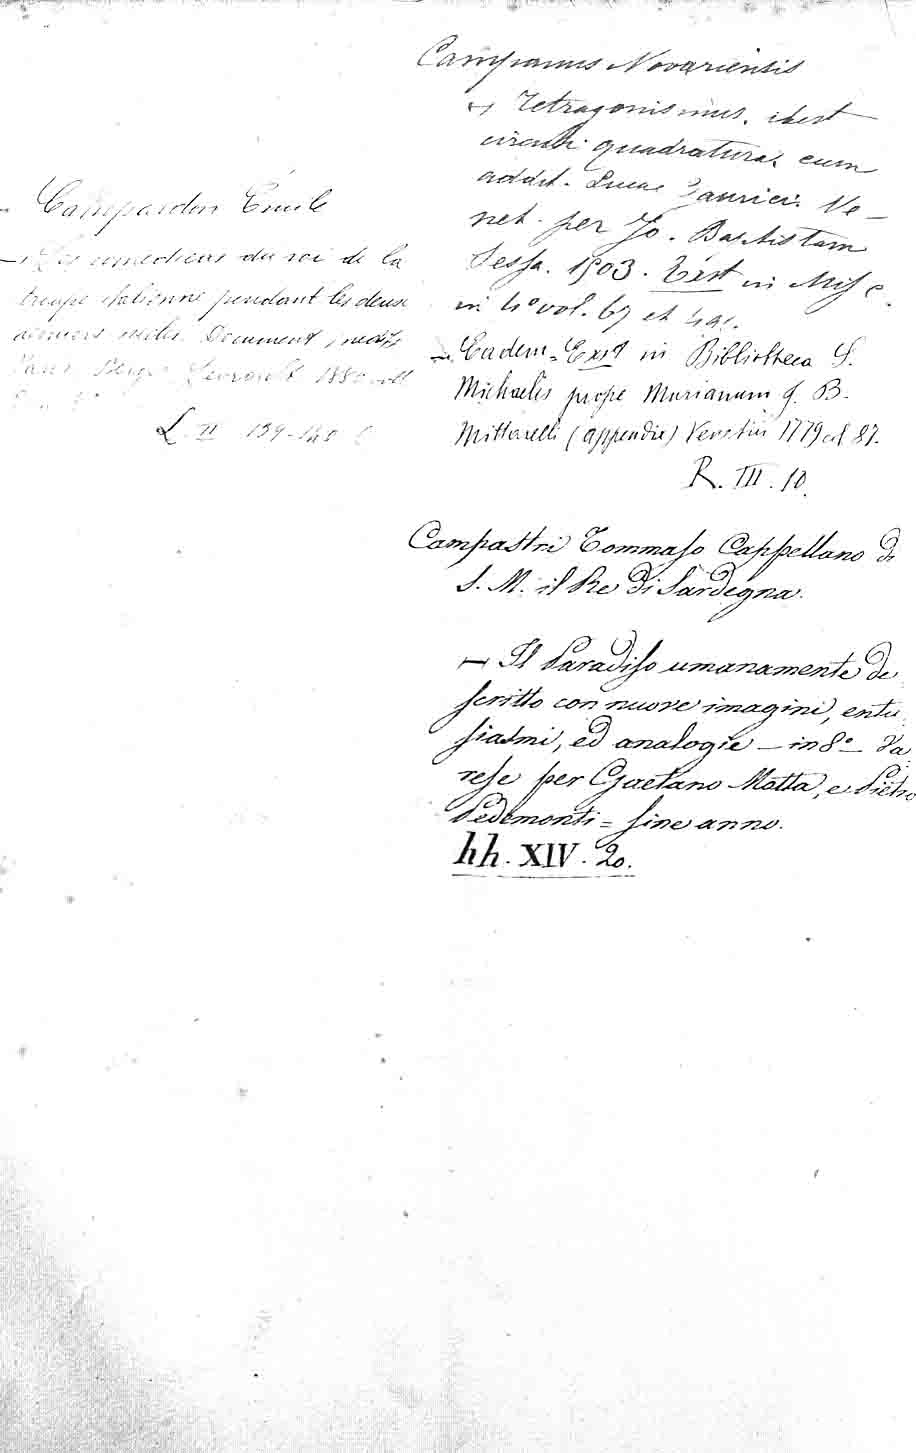 Campardon Émile
— Les comediens du roi de la
troupe italienne pendant les deux
derniers siecles. Documents inedits
Paris Berger Levrault 1880 voll
L. II 139-140
Campanus Novariensis
— Tetragonismus, idest
circuli quadratura, cum
addit. Lucae Gaurici. Ve-
net. per Jo. Baptistam
Sessa. 1503. Exst in Misc.
in 4° vol. 67 et
— Eadem = Exst in Bibliotheca S.
Michaelis prope Murianum J. B.
Mittarelli (appendix) Venetiis 1779 col 87.
R. III. 10.
Campastri Tommaso Cappellano di
S. M. il Re di Sardegna.
— Il Paradiso umanamente de
scritto con nuove imagini, entu
siasmi, ed analogie — in 8° — Va
rese per Gaetano Motta, e Pietro
Pedemonti = sine anno.
hh. XIV. 20.